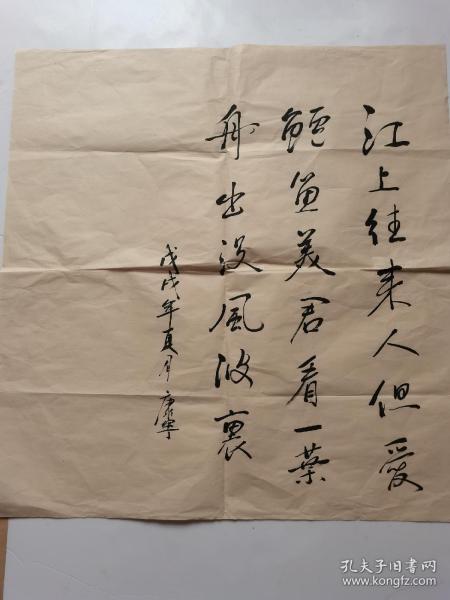 江上往来人但愛
鲈魚美君看一葉
舟出没風波裏
戊戌年夏月康寧
孔夫子旧书网
www.kongfz.com